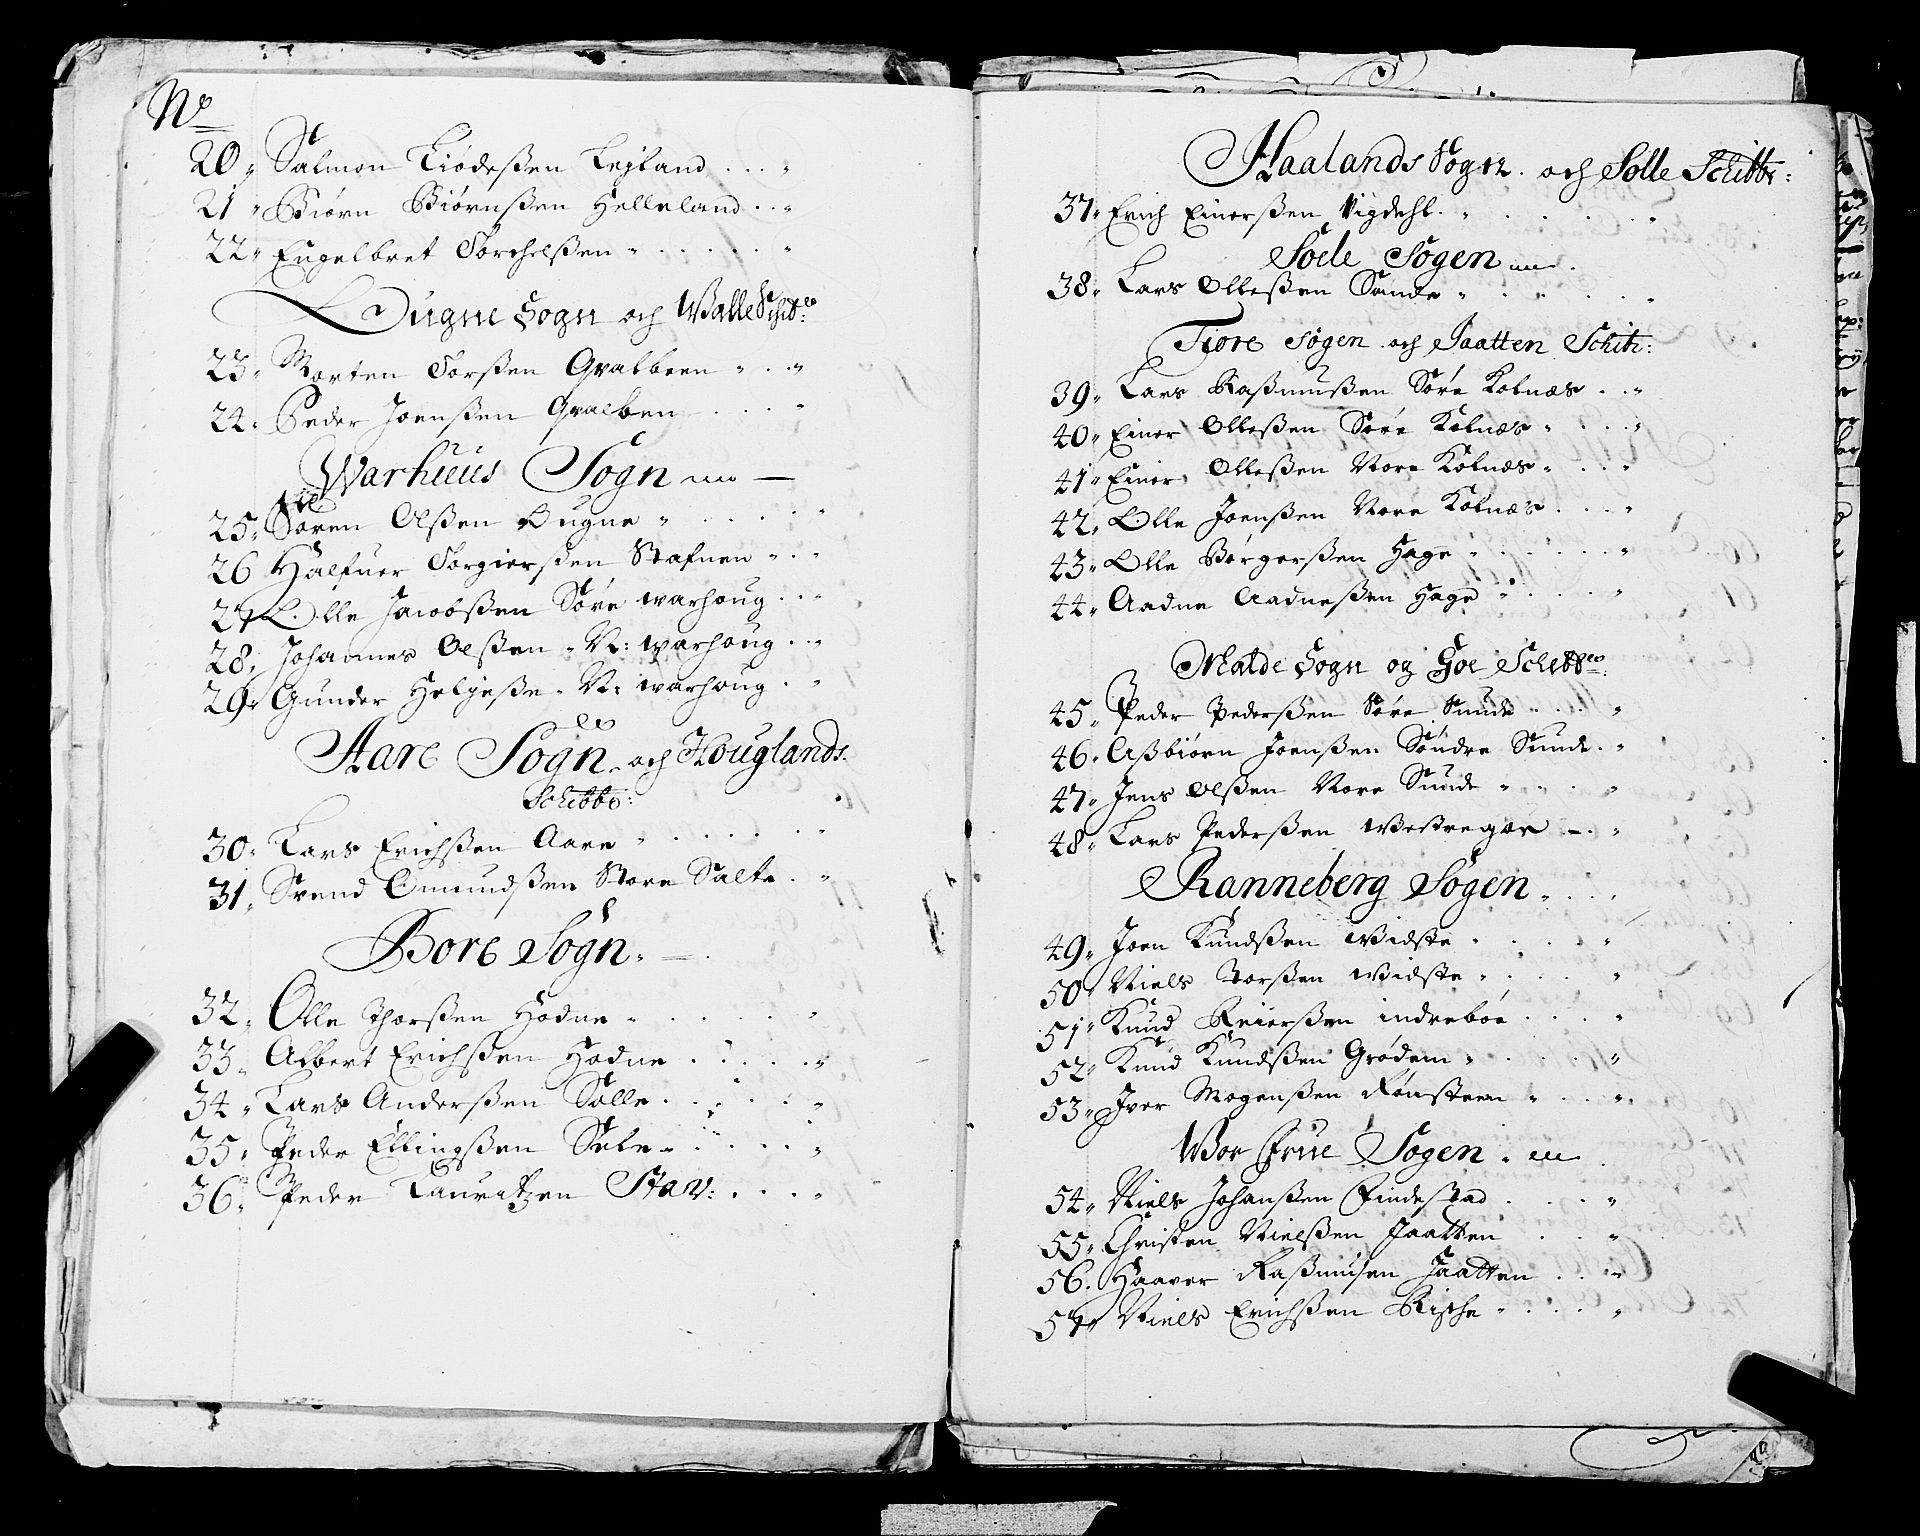 No
20, Salmon Tiødeßen Lejland
21 Biørn Biørnßen Helleland
22, Engelbret Torchelßen
Dugne Sogn och Walle Schib:
23, Morten Torßen Qvalbeen
24, Peder Joenßen Qvalben
Warhuus Sogn
25, Søren Olßen Dugne
26 Halfuer Torgierßen Stafnen
27 Olle Jacobßen Søre warhoug
28, Johannes Oelßen N: warhoug
29, Gunder Heljeße N: warhoug
Aare Sogn och Houglands
Schibbe:
30, Lars Erichßen Aare
31, Svend Omundßen Store Salte
Bore Sogn
32, Olle Thorßen Hodne
33, Albert Erichßen Hodne
34, Lars Anderßen Solle
35, Peder Ellingßen Sele
36, Peder Lauritzen Stav:
Haalands Sogn och Solle Schibb:
37, Erich Einerßen Vigdehl
Soele Sogen
38, Lars Olleßen Sande
Tiore Sogen och Jaatten Schib:
39, Lars Raßmusßen Søre Kolnæs
40, Einer Olleßen Søre Kolnæs
41, Einer Olleßen Nore Kolnæs
42, Olle Joenßen Nore Kolnæs
43, Olle Børgerßen Hage
44, Aadne Aadneßen Hage
Malde Sogn og Goe Schibben
45, Peder Pederßen Søre Sunde
46, Aßbiørn Joenßen Søndre Sunde
47, Jens Olßen Nore Sunde
48, Lars Pederßen Westregor
Ranneberg Sogen
49, Joen Kundßen Widste
50, Niels Torßen Widste
51, Knud Reierßen indrebøe
52, Knud Kundßen Grødem
53, Iver Mogenßen Rønsteen
Wor Frue Sogen
54, Niels Johanßen Findestad
55, Christen Nielßen Jaatten
56. Haaver Raßmusen Jaatten
57, Niels Erichßen Rische